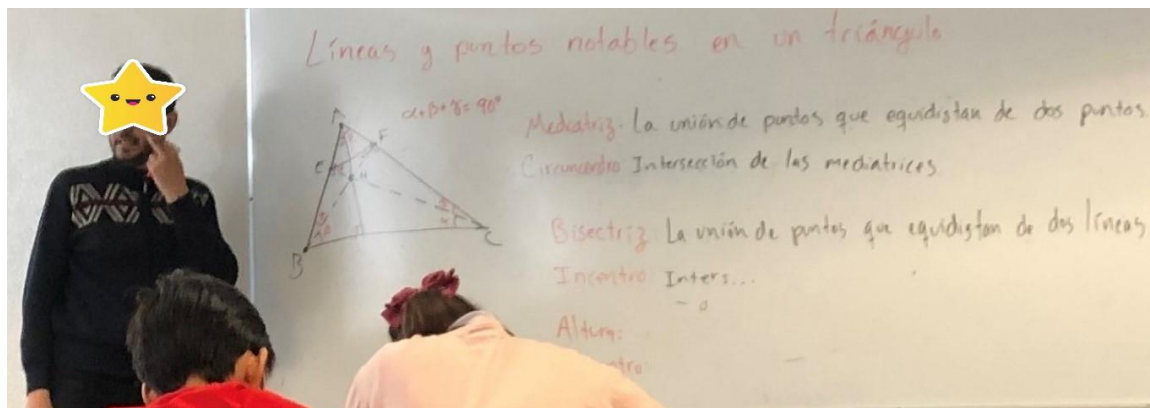 Líneas y puntos notables en un triángulo
α+β+γ=90°
Mediatriz. La unión de puntos que equidistan de dos puntos.
Circuncentro Intersección de las mediatrices
Bisectriz La unión de puntos que equidistan de dos líneas
Incentro Inters...
Altura:
ntro
A
F
E
H
B
C